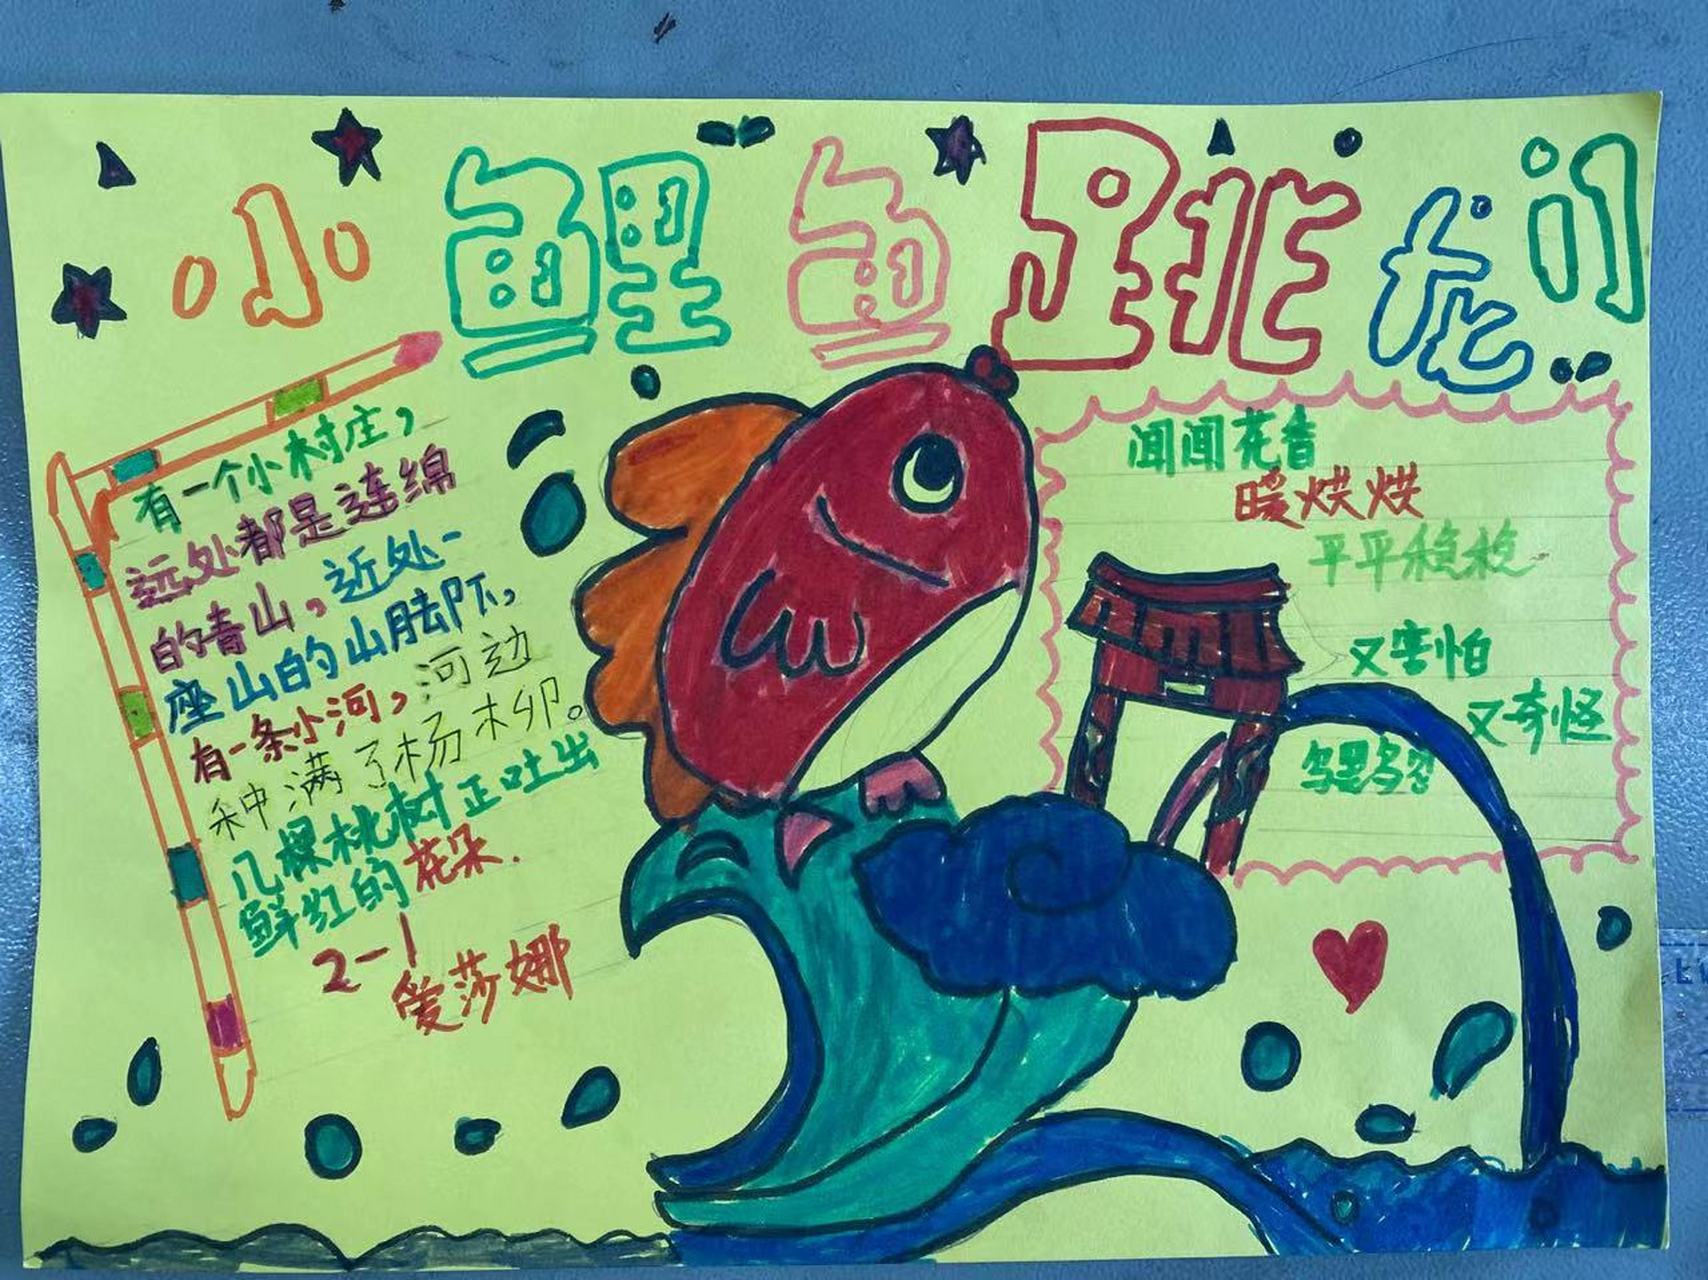 小鲤鱼跳龙门
有一个小村庄，
远处都是连绵
的青山，近处一
座山的山脚下，
有一条小河，河边
种满了杨木卯。
几棵桃树正吐出
鲜红的花朵.
2-1
爱莎娜
闻闻花香
暖烘烘
平平稳稳
又害怕
又奇怪